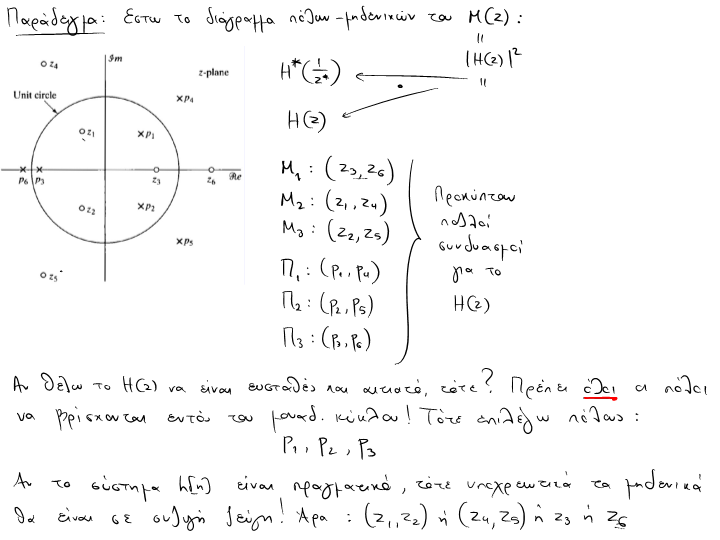 Παράδειγμα: Έστω το διάγραμμα πόλων-μηδενικών του M(z) :
||
|H(z)|²
||
H*(1/z*)
H(z)
Im
z-plane
Unit circle
z4
p4
z1
p1
p6 p3
z3
z6
Re
z2
p2
p5
z5
M1 : (z3, z6)
M2 : (z1, z4)
M3 : (z2, z5)
Π1 : (p1, p4)
Π2 : (p2, p5)
Π3 : (p3, p6)
Προκύπτουν
πολλοί
συνδυασμοί
για το
H(z)
Αν θέλω το H(z) να είναι ευσταθές και αιτιατό, τότε? Πρέπει όλοι οι πόλοι
να βρίσκονται εντός του μοναδ. κύκλου! Τότε επιλέγω πόλους :
p1, p2, p3
Αν το σύστημα h[n] είναι πραγματικό, τότε υποχρεωτικά τα μηδενικά
θα είναι σε συζυγή ζεύγη! Άρα : (z1, z2) ή (z4, z5) ή z3 ή z6